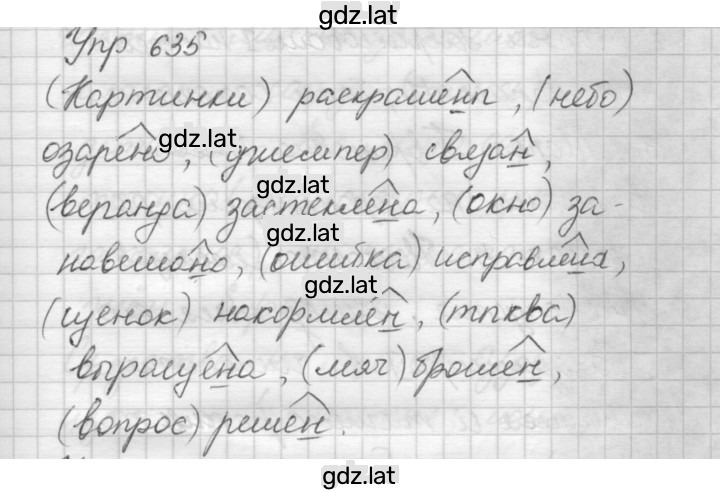 gdz.lat
Упр 635
(Картинки) раскрашены, (небо)
озарено, (джемпер) связан,
gdz.lat
(веранда) застеклена, (окно) за-
gdz.lat
gdz.lat
навешано, (ошибка) исправлена,
gdz.lat
(щенок) накормлен, (тыква)
выращена, (мяч) брошен,
(вопрос) решен.
gdz.lat